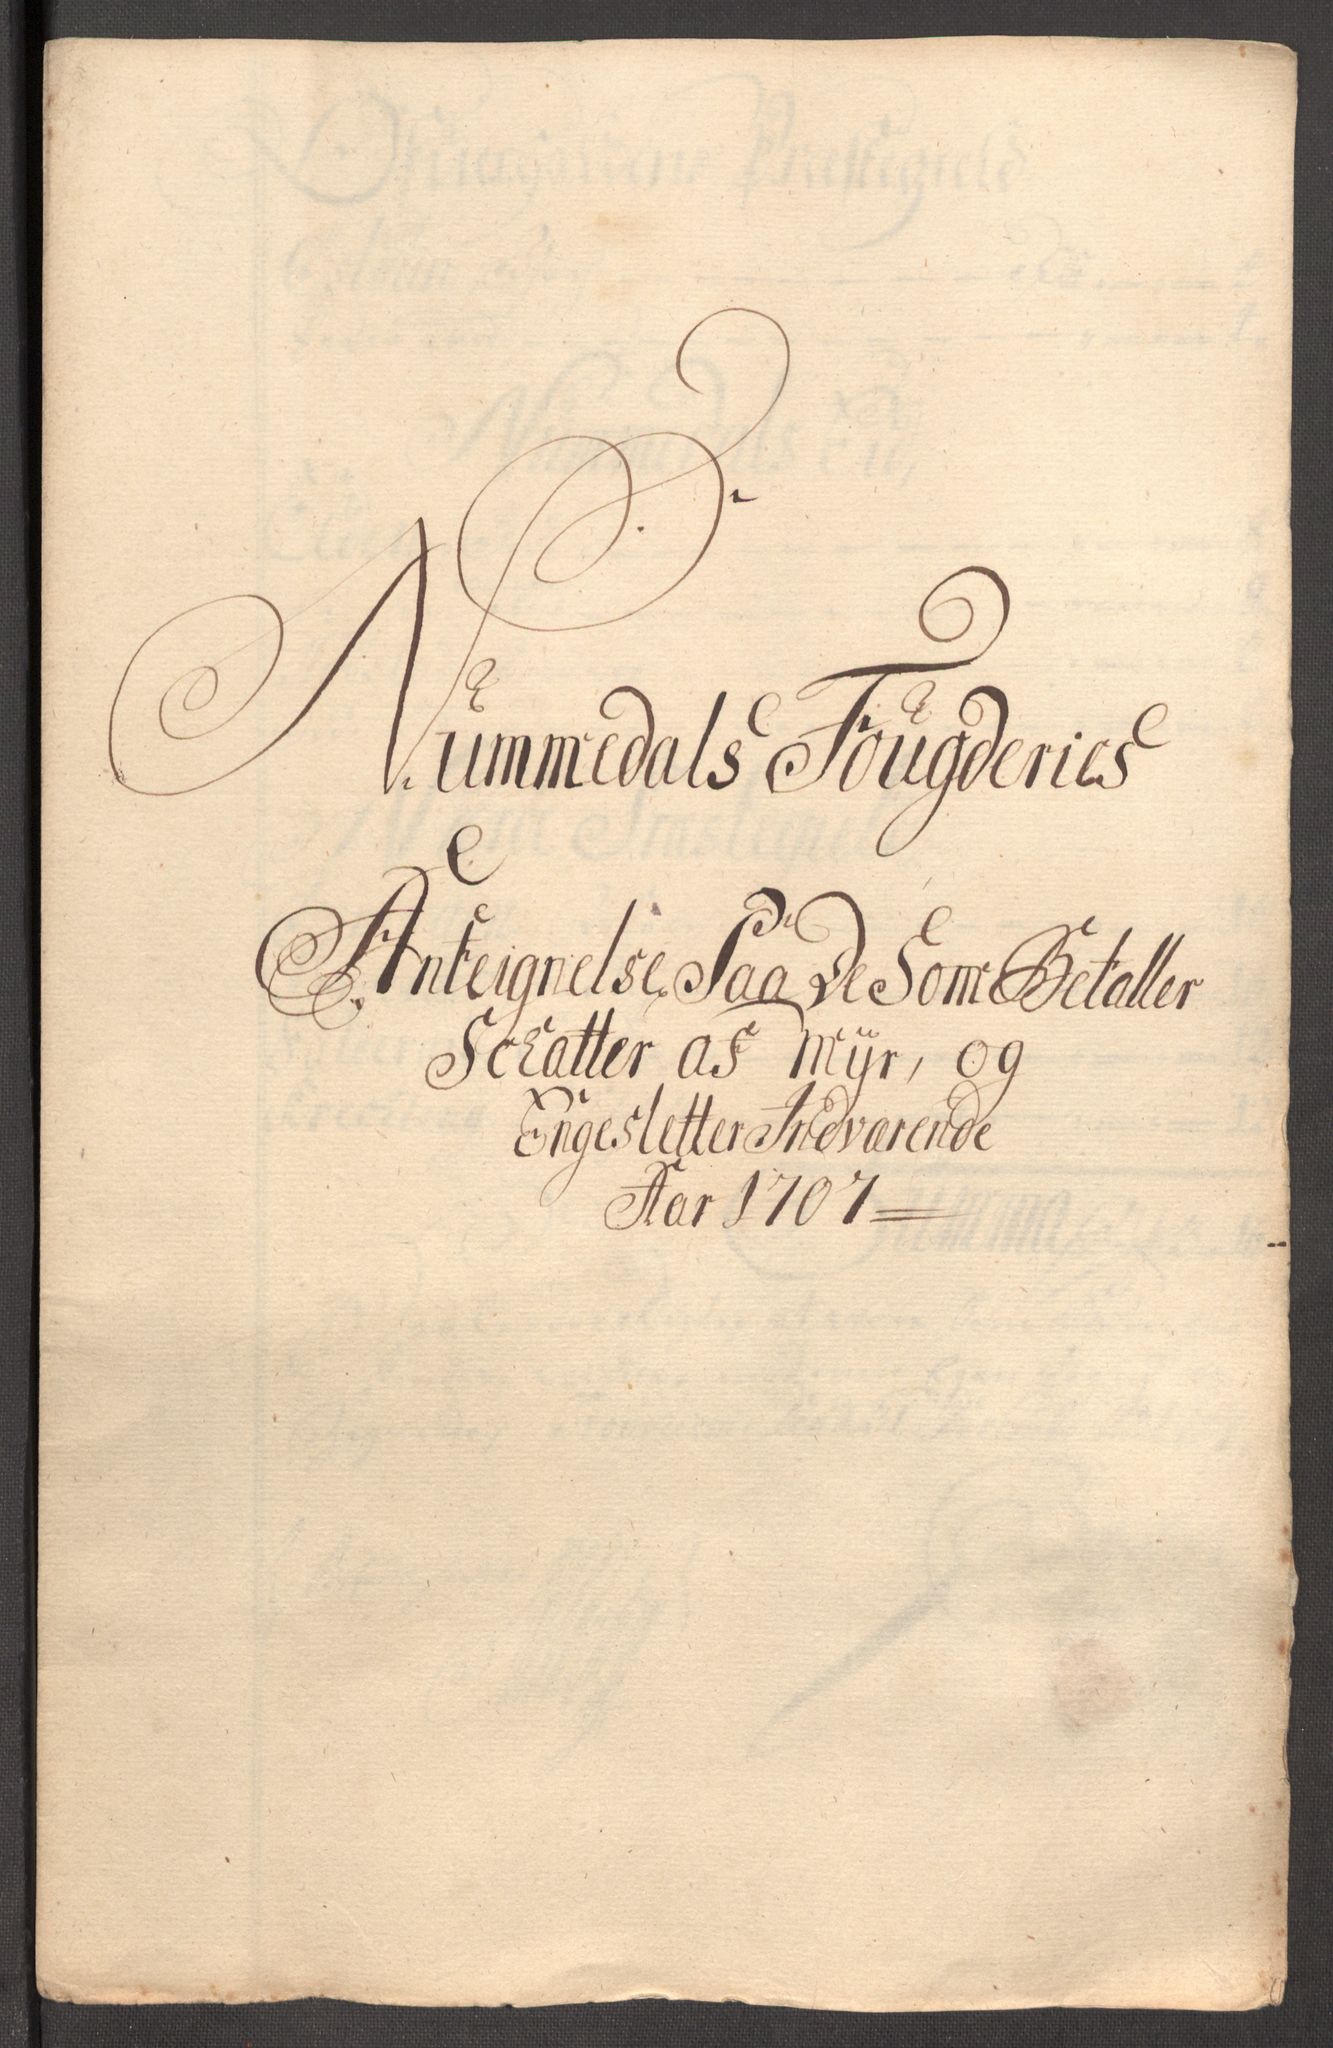 Nummedals Fougderies
Anteignelse Paa De Som Betaller
Sckatter af Myr, og
Engesletter Indværende
Aar 1707